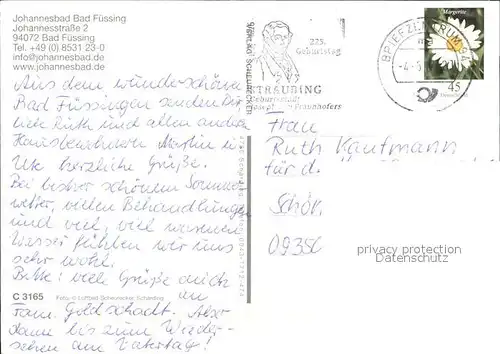 Johannesbad Bad Füssing
Johannesstraße 2
94072 Bad Füssing
Tel. +49 (0) 8531 23-0
info@johannesbad.de
www.johannesbad.de
Aus dem wunderschönen
Bad Füssingen senden Dir
liebe Ruth und allen anderen
Hausbewohnern Martin u.
Ute herzliche Grüße.
Bei bisher schönem Sommer-
wetter, vielen Behandlungen
und viel, viel warmem
Wasser fühlen wir uns
sehr wohl.
Bitte: viele Grüße auch
an
Fam. Goldschadt. Aber
dann bis zum Wieder-
sehen am Vatertag!
C 3165
225.
Geburtstag
STRAUBING
Geburtsstadt
Joseph v. Fraunhofers
BRIEFZENTRUM 94
Margerite
45
Frau
Ruth Kaufmann
für d.
Schön
0935
privacy protection
Datenschutz